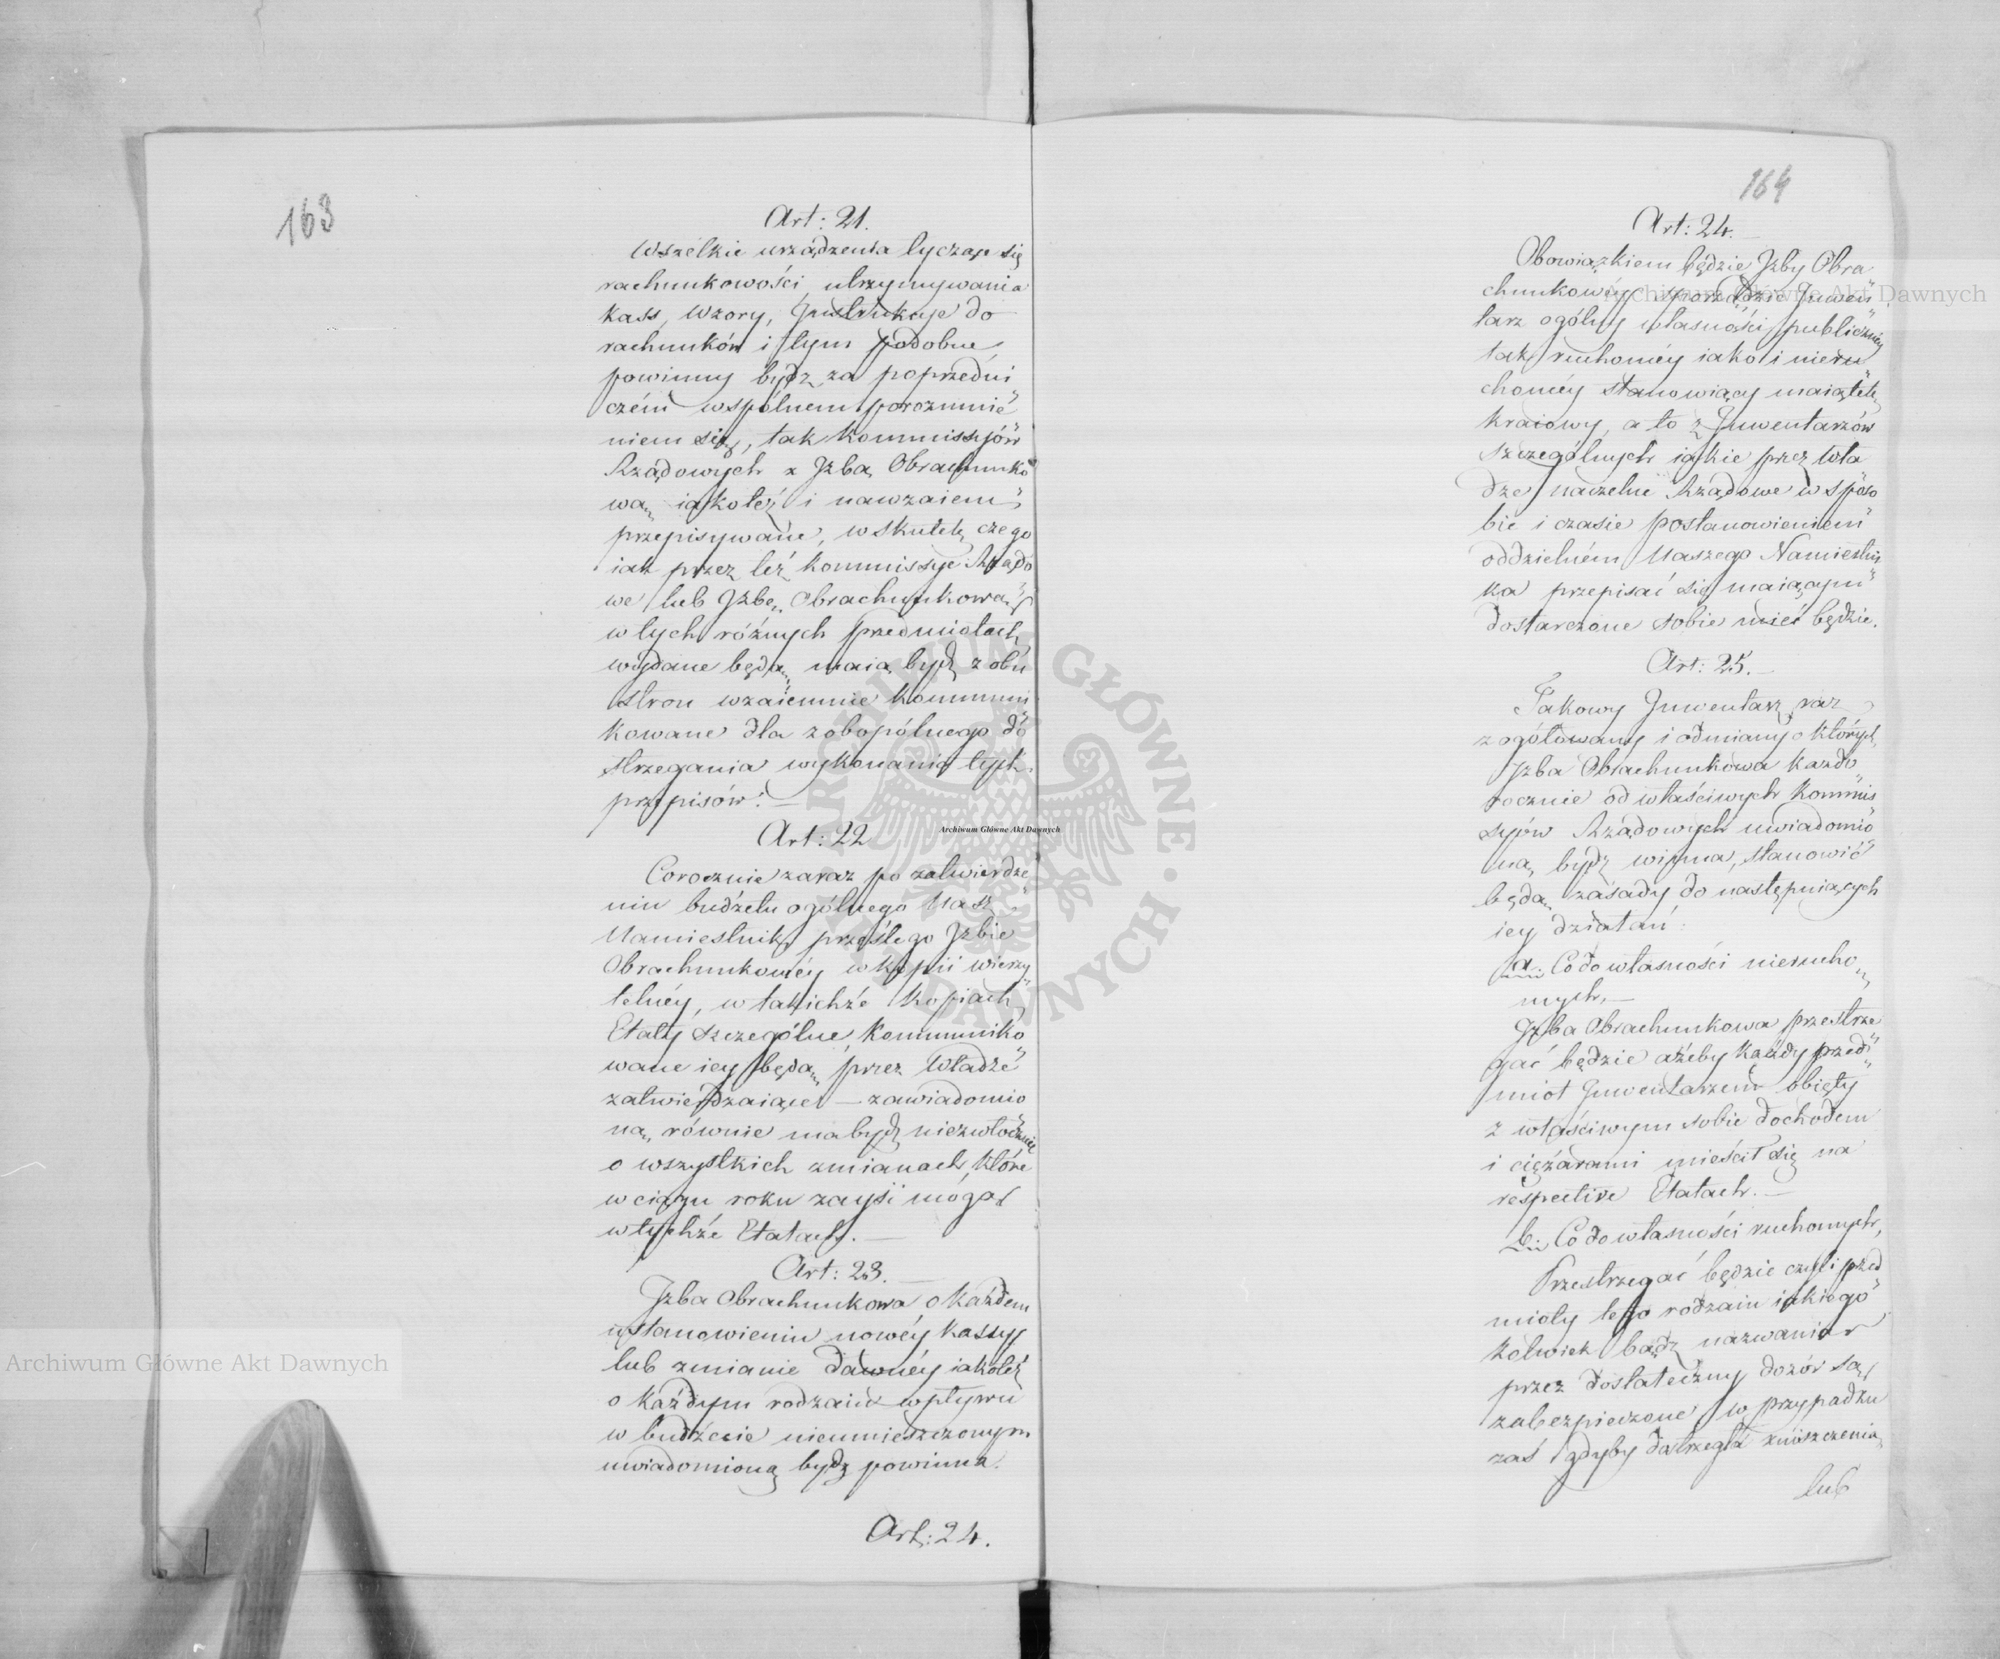 163
Art: 21.
Wszelkie urządzenia tyczące się
rachunkowości utrzymywania
kass, wzory, Instrukcje do
rachunków i tym podobne
powinny bydź za poprzedni
czém wspólnem porozumie
niem się, tak Kommissyów
Rządowych z Izbą Obrachunko
wą, iakoteż i nawzaiem
przepisywane, w skutek czego
iak przez też Kommissye Rządo
we lub Izbę Obrachunkową
w tych różnych przedmiotach
wydane będą, maią bydź z obu
stron wzaiemnie kommuni
kowane dla zobopólnego do
strzegania wykonania tych
przepisów. —
Art: 22
Corocznie zaraz po zatwierdze
niu budżetu ogólnego Nasz
Namiestnik prześle go Izbie
Obrachunkowéy w kopii wierzy
telnéy, w takichże kopiach
Etaty szczególne kommuniko
wane iey będą przez Władze
zatwierdzaiące — zawiadomio
ną równie ma bydź niezwłocznie
o wszystkich zmianach, które
w ciągu roku zayśi mogą
w tychże Etatach. —
Art: 23. —
Izba Obrachunkowa o każdem
ustanowieniu nowéy kassy
lub zmianie dawnéy iakoteż
o każdym rodzaiu wpływu
w budżecie nieumieszczonym
uwiadomioną bydź powinna.
Art: 24.
164
Art: 24. —
Obowiązkiem będzie Izby Obra
chunkowéy sporządzić Inwen
tarz ogólny własności publiczney
tak ruchoméy iako i nieru
choméy stanowiący maiątek
kraiowy, a to z Inwentarzów
szczególnych iakie przez Wła
dze naczelne Rządowe w sposo
bie i czasie postanowieniem
oddzielném Naszego Namiestni
ka przepisać się maiącym
dostarczone sobie mieć będzie.
Art: 25. —
Takowy Inwentarz raz
zogółowany i odmiany o których
Izba Obrachunkowa każdo
rocznie od właściwych Kommis
syów Rządowych uwiadomio
ną bydź winna, stanowić
będą zasady do następuiących
iey działań:
a. Co do własności nierucho
mych. —
Izba Obrachunkowa przestrze
gać będzie ażeby każdy przed
miot Inwentarzem obięty
z właściwym sobie dochodem
i ciężarami mieścił się na
respective Etatach. —
b. Co do własności ruchomych,
Przestrzegać będzie czyli przed
mioty tego rodzaiu iakiego
kolwiek bądź nazwania
przez dostateczny dozór są
zabezpieczone w przypadku
zaś gdyby dostrzegła zniszczenia
lub
Archiwum Główne Akt Dawnych
Archiwum Główne Akt Dawnych
Archiwum Główne Akt Dawnych
ARCHIWUM GŁÓWNE AKT DAWNYCH